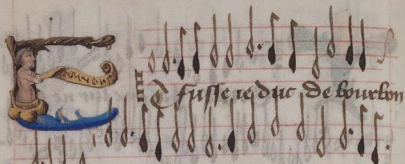 Et fusse je duc de bourbon